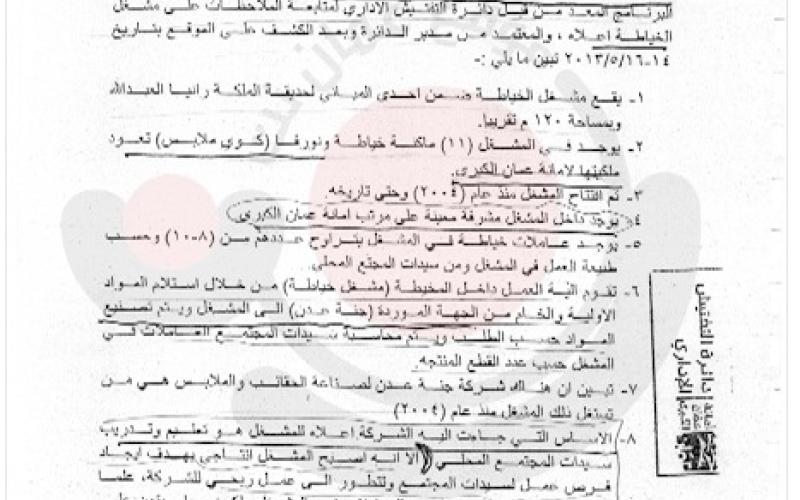 البرنامج المعد من قبل دائرة التفتيش الاداري لمتابعة الملاحظات على مشغل
الخياطة اعلاه ، والمعتمد من مدير الدائرة وبعد الكشف على الموقع بتاريخ
١٤-٢٠١٣/٥/١٦ تبين ما يلي :-
١- يقع مشغل الخياطة ضمن احدى المباني لحديقة الملكة رانيا العبدالله
وبمساحة ١٢٠ م تقريبا.
٢- يوجد في المشغل (١١) ماكنة خياطة ونورفا (كوي ملابس) تعود
ملكيتها لامانة عمان الكبرى.
٣- تم افتتاح المشغل منذ عام (٢٠٠٤) وحتى تاريخه.
٤- يوجد داخل المشغل مشرفة معينة على مرتب امانة عمان الكبرى
٥- يوجد عاملات خياطة في المشغل يتراوح عددهم من (٨-١٠) وحسب
طبيعة العمل في المشغل ومن سيدات المجتمع المحلي.
٦- تقوم الية العمل داخل المخيطة (مشغل خياطة) من خلال استلام المواد
الاولية والخام من الجهة الموردة (جنة عدن) الى المشغل ويتم تصنيع
المواد حسب الطلب ويتم محاسبة سيدات المجتمع العاملات في
المشغل حسب عدد القطع المنتجه.
٧- تبين ان هناك شركة جنة عدن لصناعة الحقائب والملابس هي من
تستغل ذلك المشغل منذ عام (٢٠٠٤)
٨- الاساس التي جاءت اليه الشركة اعلاه للمشغل هو تعليم وتدريب
سيدات المجتمع المحلي الا انه اصبح المشغل انتاجي بهدف ايجاد
فرص عمل لسيدات المجتمع وتتطور الى عمل ربحي للشركة، علما
دائرة التفتيش
الإداري
أمانة
عمان
الكبرى